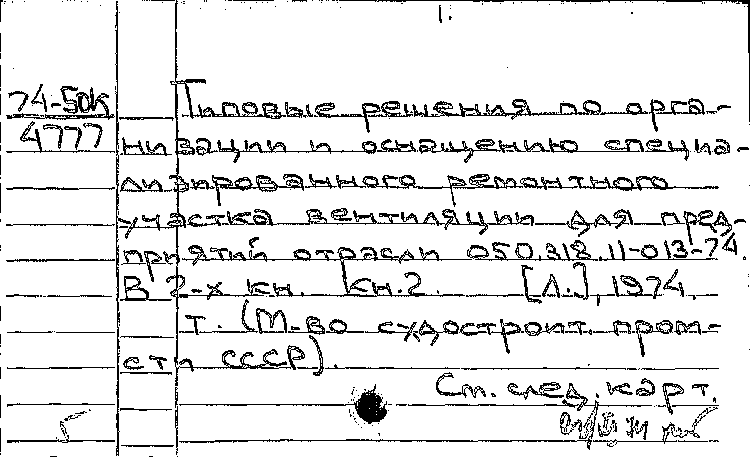 1.
74-50К
4777
Типовые решения по орга-
низации и оснащению специа-
лизированного ремонтного
участка вентиляции для пред-
приятий отрасли 050.318.11-013-74.
В 2-х кн. Кн.2. [Л.], 1974.
Т. (М-во судостроит. пром-
сти СССР).
См. след. карт.
5